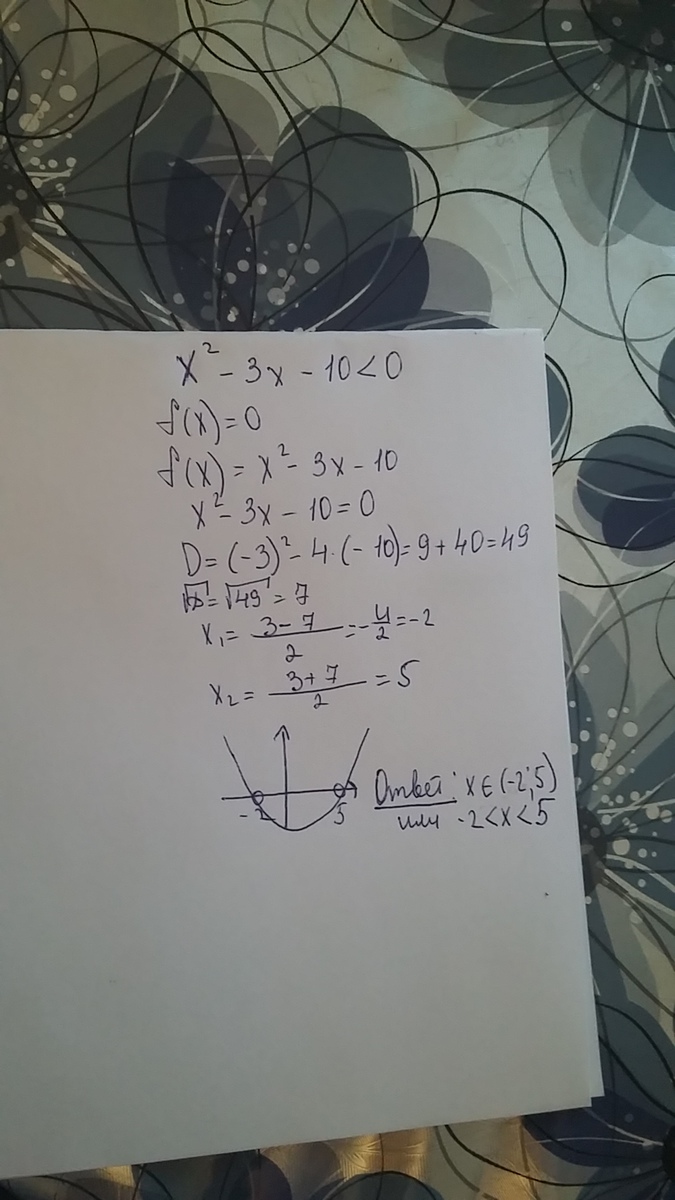 x² - 3x - 10 < 0
f(x) = 0
f(x) = x² - 3x - 10
x² - 3x - 10 = 0
D = (-3)² - 4·(-10) = 9 + 40 = 49
√D = √49 = 7
x₁ = (3 - 7)/2 = -4/2 = -2
x₂ = (3 + 7)/2 = 5
-2 5
Ответ: x ∈ (-2; 5)
или -2 < x < 5